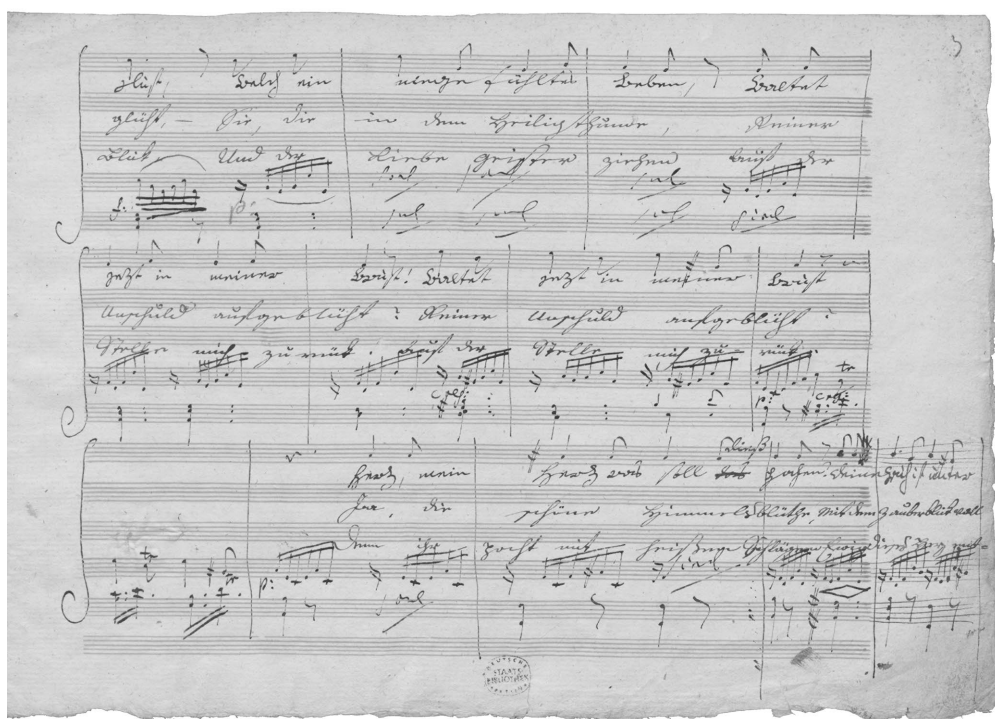 glüht, Welch ein ungefühltes Beben, Waltet
glüht, – Sie, die in dem Heiligthume, Reiner
Blick. Und der Liebe Geister ziehen Auf der
jetzt in meiner Brust! Waltet jetzt in meiner Brust
Unschuld aufgeblüht? Reiner Unschuld aufgeblüht?
Stelle mich zurück. Auf der Stelle mich zurück.
Herz, mein Herz was soll dieß pochen? deine Ruh ist unter
Ja, die schöne Himmelsblüthe, Mit dem Zauberblick voll
Denn ihr pocht mit heißen Schlägen
DEUTSCHE STAATSBIBLIOTHEK BERLIN